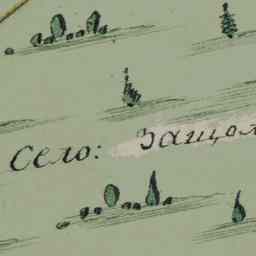 Село: Защол